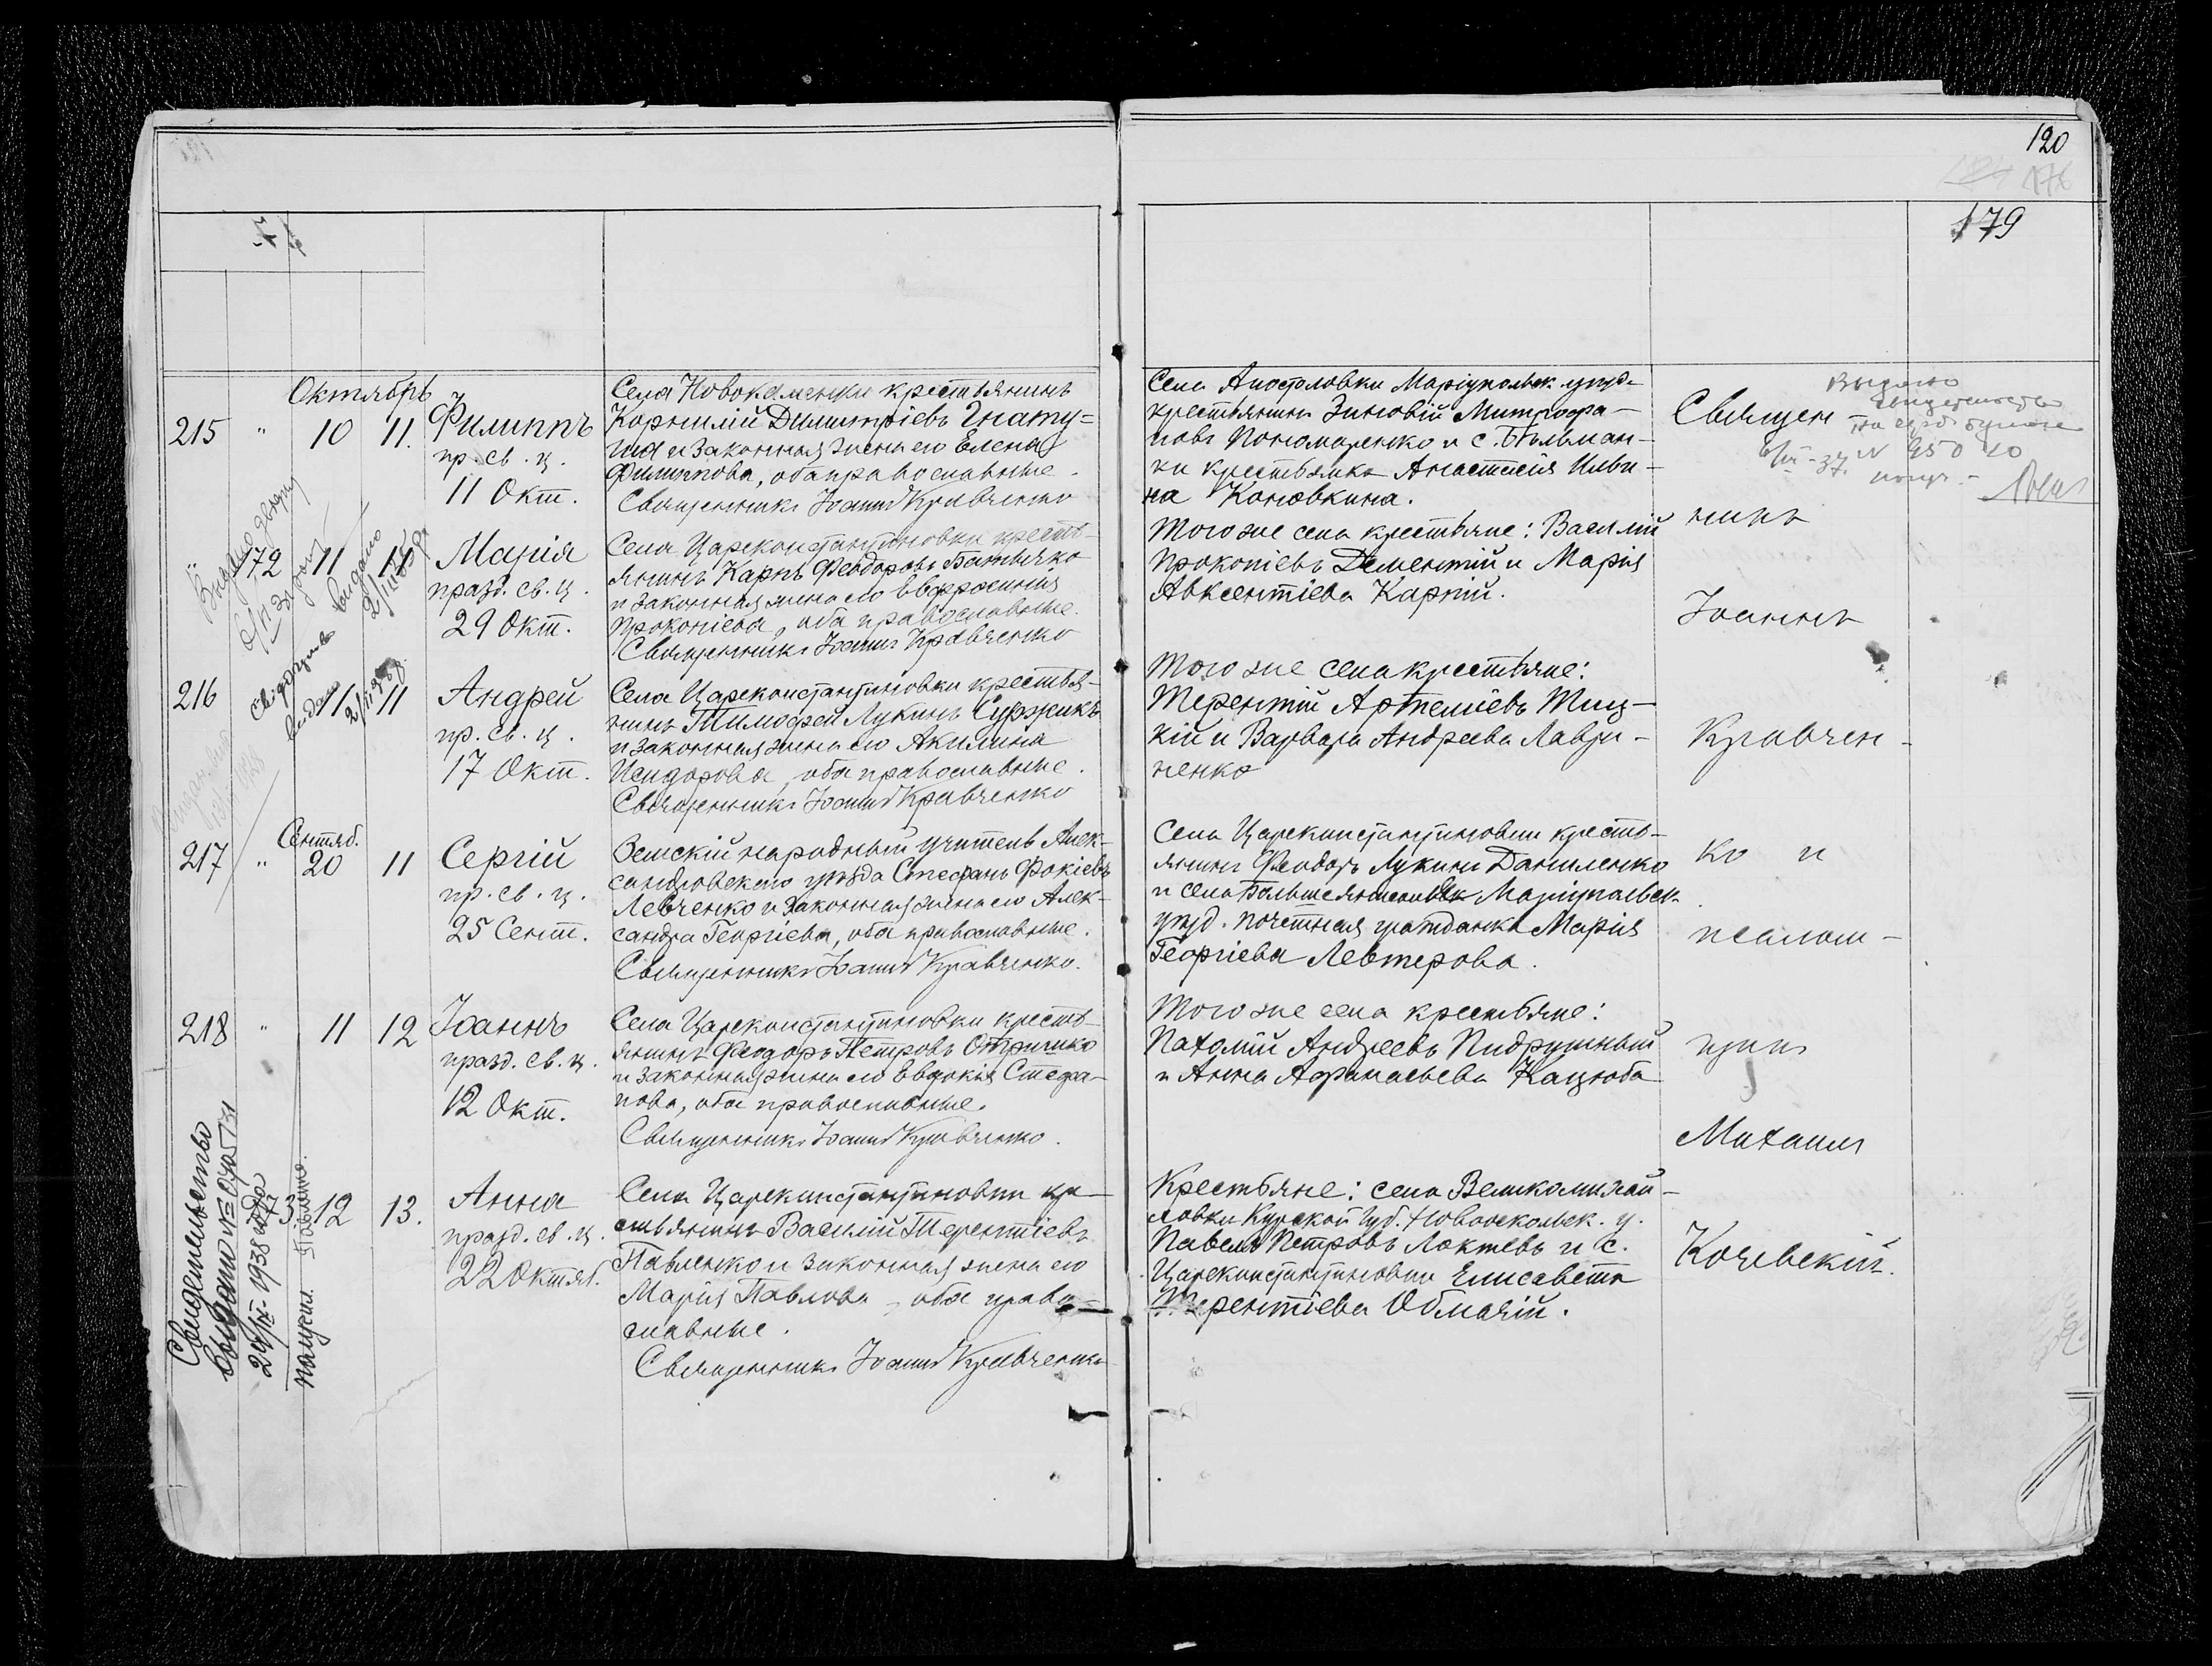 120
179
Октябрь
215 " 10 11.
Филиппъ
пр. св. ц.
11 Окт.
Села Новокаменки крестьянинъ
Корнилій Димитріевъ Гнату-
ша и законная жена его Елена
Филиппова, оба православные.
Священникъ Іоаннъ Кравченко
Села Апостоловки Маріупольск. уѣзд.
крестьянинъ Зиновій Митрофа-
новъ Пономаренко и с. Бѣльман-
ки крестьянка Анастасія Ильи-
на Коновкина.
" 72 11 11
Марія
празд. св. ц.
29 Окт.
Села Цареконстантиновки кресть-
янинъ Карпъ Феодоровъ Батычко
и законная жена его Евфросинія
Прокопіева, оба православные.
Священникъ Іоаннъ Кравченко
Того же села крестьяне: Василій
Прокопіевъ Дементій и Марія
Авксентіева Карпій.
216 11 11
Андрей
пр. св. ц.
17 Окт.
Села Цареконстантиновки крестья-
нинъ Тимофей Лукинъ Суржикъ
и законная жена его Акилина
Исидорова, оба православные.
Священникъ Іоаннъ Кравченко
Того же села крестьяне:
Терентій Артеміевъ Тиц-
кій и Варвара Андреева Лаври-
ненко
Сентяб.
217 " 20 11
Сергій
пр. св. ц.
25 Сент.
Земскій народный учитель Алек-
сандровскаго уѣзда Стефанъ Фокіевъ
Левченко и законная жена его Алек-
сандра Георгіева, оба православные.
Священникъ Іоаннъ Кравченко.
Села Цареконстантиновки кресть-
янинъ Феодоръ Лукинъ Даниленко
и села Маріупольск.
уѣзд. почетная гражданка Марія
Георгіева Левтерова.
218 " 11 12
Іоаннъ
празд. св. ц.
12 Окт.
Села Цареконстантиновки кресть-
янинъ Феодоръ Петровъ Отришко
и законная жена его Евдокія Стефа-
нова, оба православные.
Священникъ Іоаннъ Кравченко.
Того же села крестьяне:
Пахомій Андреевъ Пидрушный
и Анна Афанасьева Кацюба
73. 12 13.
Анна
празд. св. ц.
22 Октяб.
Села Цареконстантиновки кре-
стьянинъ Василій Терентіевъ
Павленко и законная жена его
Марія Павлова – оба право-
славные.
Священникъ Іоаннъ Кравченко
Крестьяне: села Великомихай-
ловки Курской Губ. Новооскольск. у.
Павелъ Петровъ Локтевъ и с.
Цареконстантиновки Елисавета
Терентіева Обмачій.
Священ-
никъ
Іоаннъ
Кравчен-
ко и
псалом-
щикъ
Михаилъ
Кочевскій.
Выдано
свидетельство
N 95040
Свидетельство
выдано
1938 года